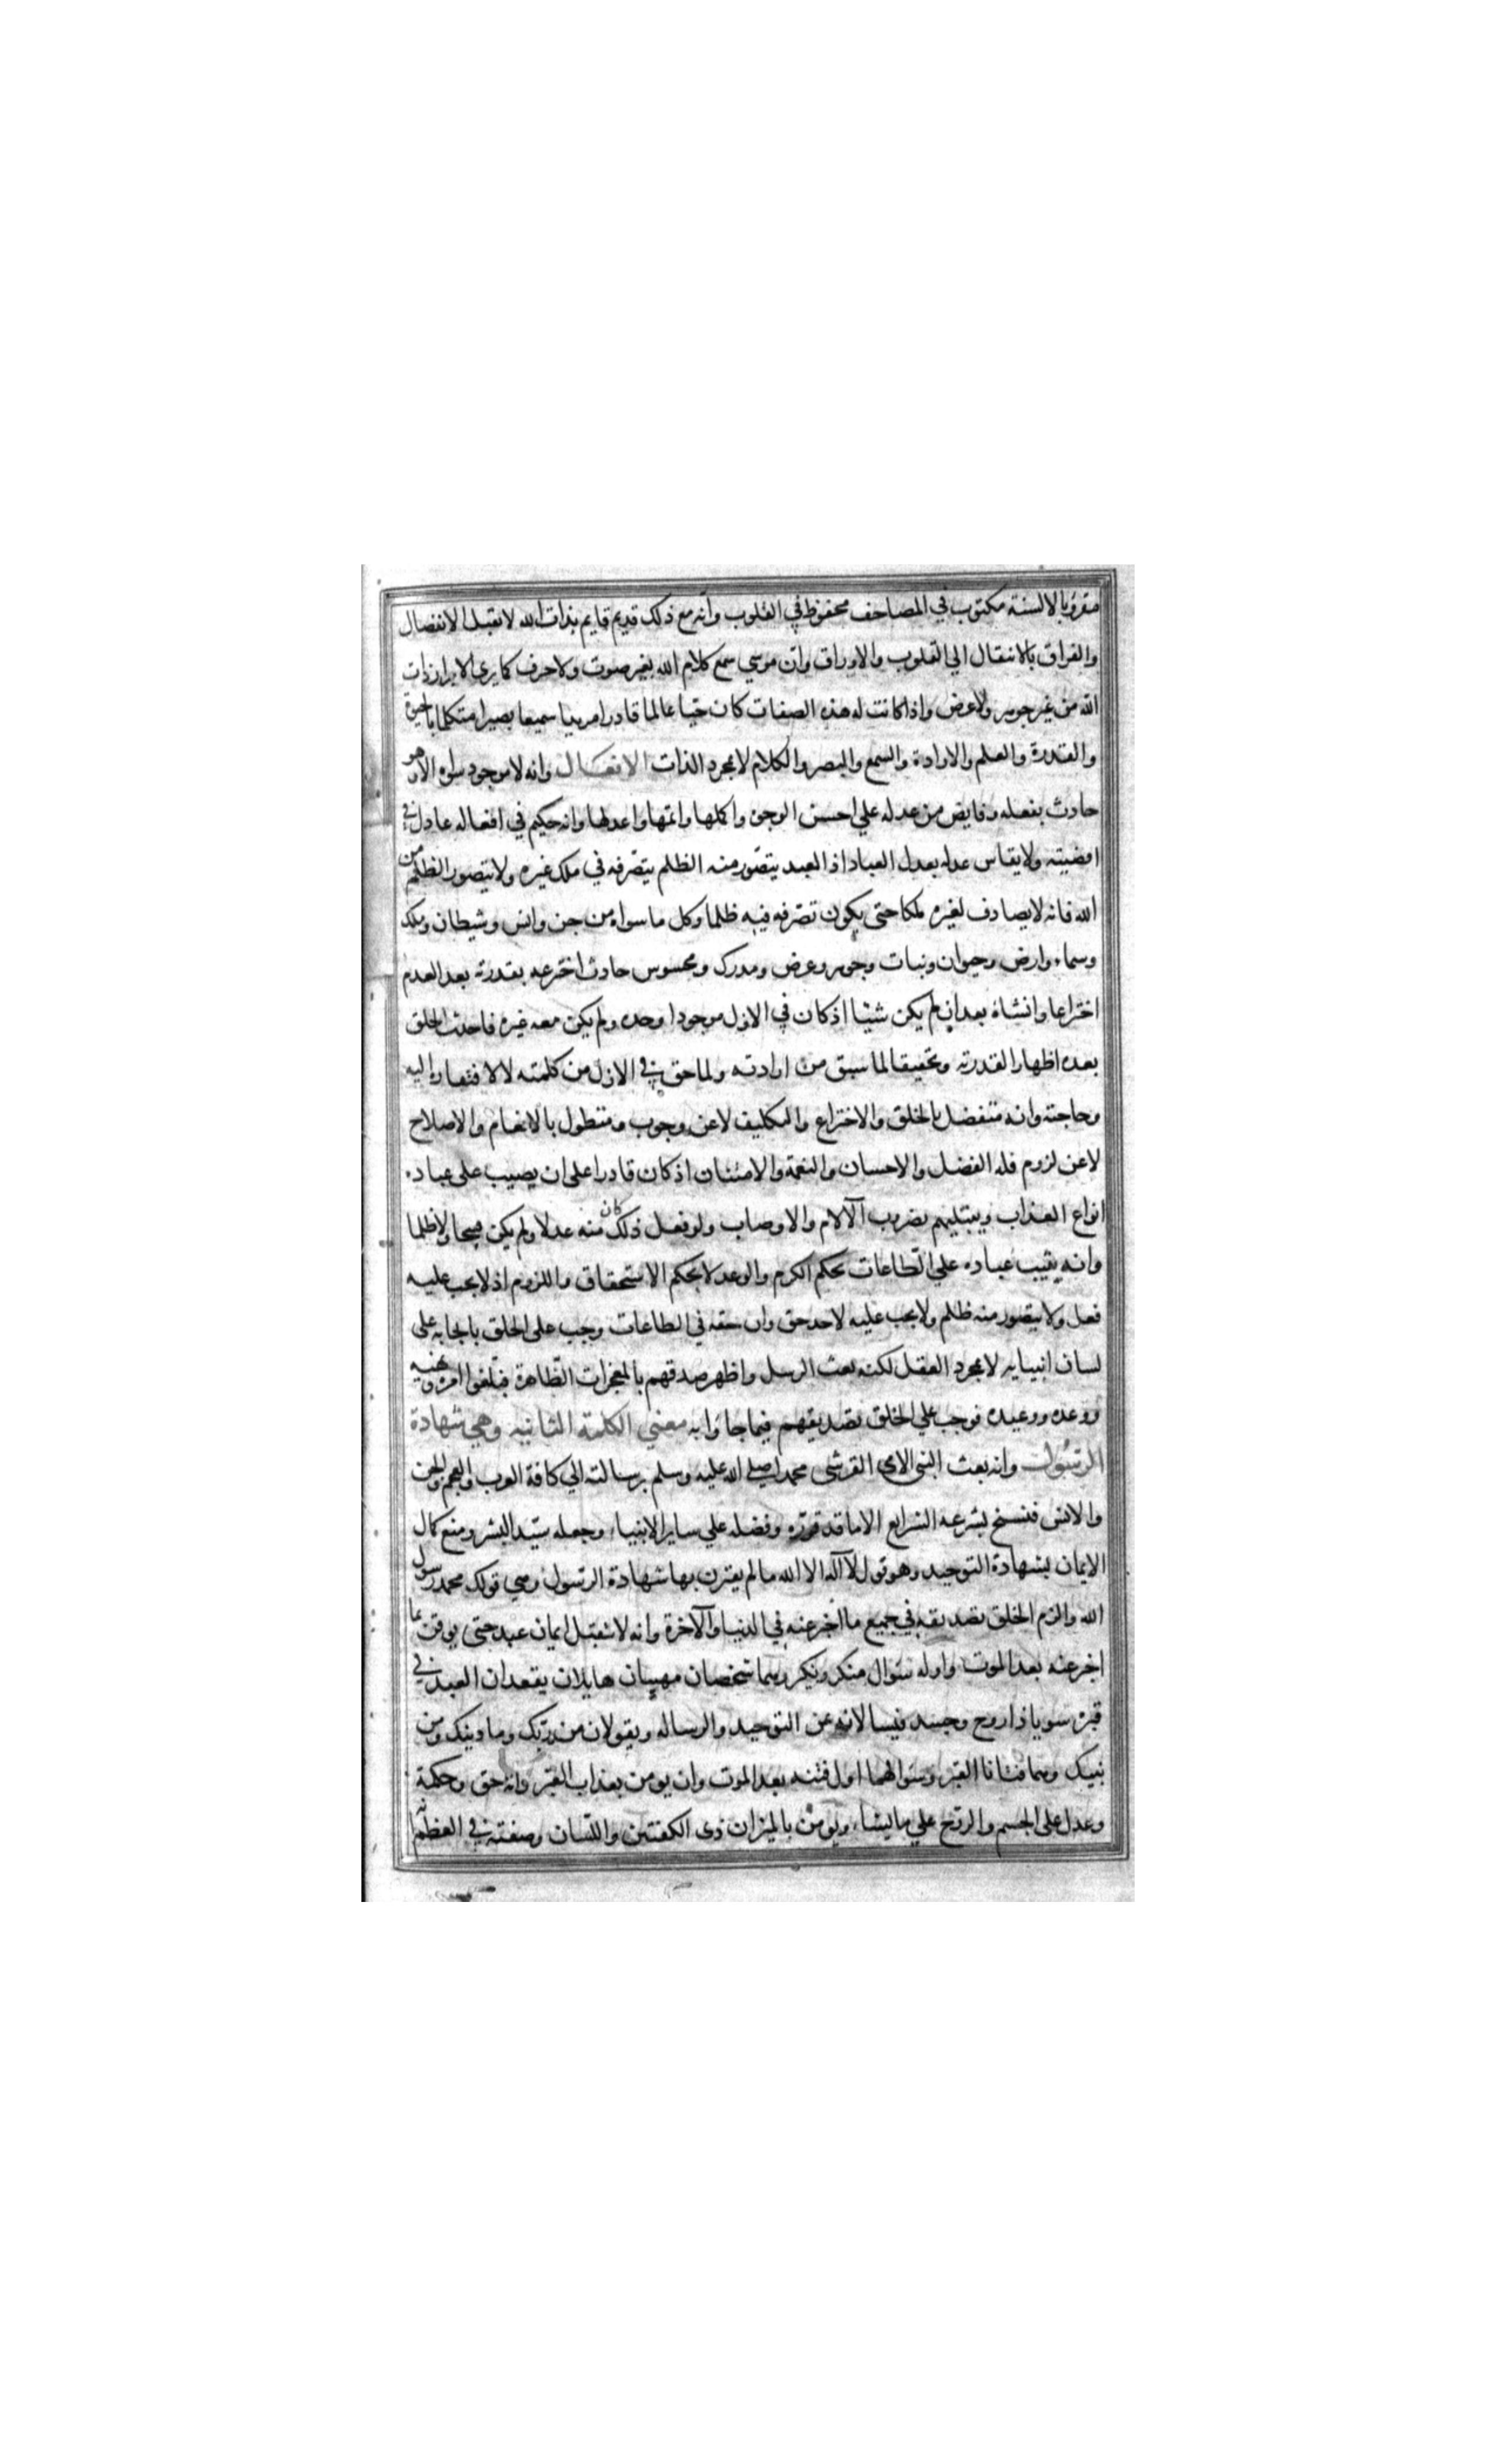 مقرو بالالسنة مكتوب في المصاحف محفوظ في القلوب وانه مع ذلك قديم قايم بذات الله لا يقبل الانفصال
والفراق بالانتقال الي القلوب والاوراق وان موسي سمع كلام الله بغير صوت ولا حرف كما يري الابرار ذات
الله من غير جوهر ولا عرض واذا كانت له هذه الصفات كان حيا عالما قادرا مريدا سميعا بصيرا متكلما بالحيوة
والقدرة والعلم والارادة والسمع والبصر والكلام لا بمجرد الذات الافعال وانه لا موجود سواه الا وهو
حادث بفعله وفايض من عدله علي احسن الوجوه واكملها واتمها واعدلها وانه حكيم في افعاله عادل في
اقضيته ولا يقاس عدله بعدل العباد اذ العبد يتصور منه الظلم بتصرفه في ملك غيره ولا يتصور الظلم من
الله فانه لا يصادف لغيره ملكا حتي يكون تصرفه فيه ظلما وكل ما سواه من جن وانس وشيطان وملك
وسماء وارض وحيوان ونبات وجوهر وعرض ومدرك ومحسوس حادث اخترعه بقدرته بعد العدم
اختراعا وانشاه بعد ان لم يكن شيئا اذ كان في الازل موجودا وحده ولم يكن معه غيره فاحدث الخلق
بعده اظهارا لقدرته وتحقيقا لما سبق من ارادته ولما حق في الازل من كلمته لا لافتقاره اليه
وحاجته وانه متفضل بالخلق والاختراع والتكليف لا عن وجوب ومتطول بالانعام والاصلاح
لا عن لزوم فله الفضل والاحسان والنعمة والامتنان اذ كان قادرا على ان يصيب على عباده
انواع العذاب ويبتليهم بضروب الآلام والاوصاب ولو فعل ذلك كان منه عدلا ولم يكن قبيحا ولا ظلما
وانه يثيب عباده علي الطاعات بحكم الكرم والوعد لا بحكم الاستحقاق واللزوم اذ لا يجب عليه
فعل ولا يتصور منه ظلم ولا يجب عليه لاحد حق وان حقه في الطاعات وجب على الخلق بايجابه على
لسان انبيايه لا بمجرد العقل لكنه بعث الرسل واظهر صدقهم بالمعجزات الظاهرة فبلغوا امره ونهيه
ووعده ووعيده فوجب علي الخلق تصديقهم فيما جاؤا به معني الكلمة الثانيه وهي شهادة
الرسول وانه بعث النبي الامي القرشي محمدا صلي الله عليه وسلم برسالته الي كافة العرب والعجم والجن
والانس فنسخ بشرعه الشرايع الا ما قد قرره وفضله علي ساير الانبياء وجعله سيد البشر ومنع كمال
الايمان بشهادة التوحيد وهو قول لا اله الا الله ما لم يقترن بها شهادة الرسول وهي قولك محمد رسول
الله والزم الخلق تصديقه في جميع ما اخبر عنه في الدنيا والآخرة وانه لا يتقبل ايمان عبد حتي يوقن بما
اخبر عنه بعد الموت واوله سؤال منكر ونكير وهما شخصان مهيبان هايلان يقعدان العبد في
قبره سويا ذا روح وجسد فيسالانه عن التوحيد والرساله ويقولان من ربك وما دينك ومن
نبيك وهما فتانا القبر وسؤالهما اول فتنه بعد الموت وان يومن بعذاب القبر وانه حق وحكمة
وعدل على الجسم والروح علي ما يشاء ويومن بالميزان ذى الكفتين واللسان وصفته في العظم